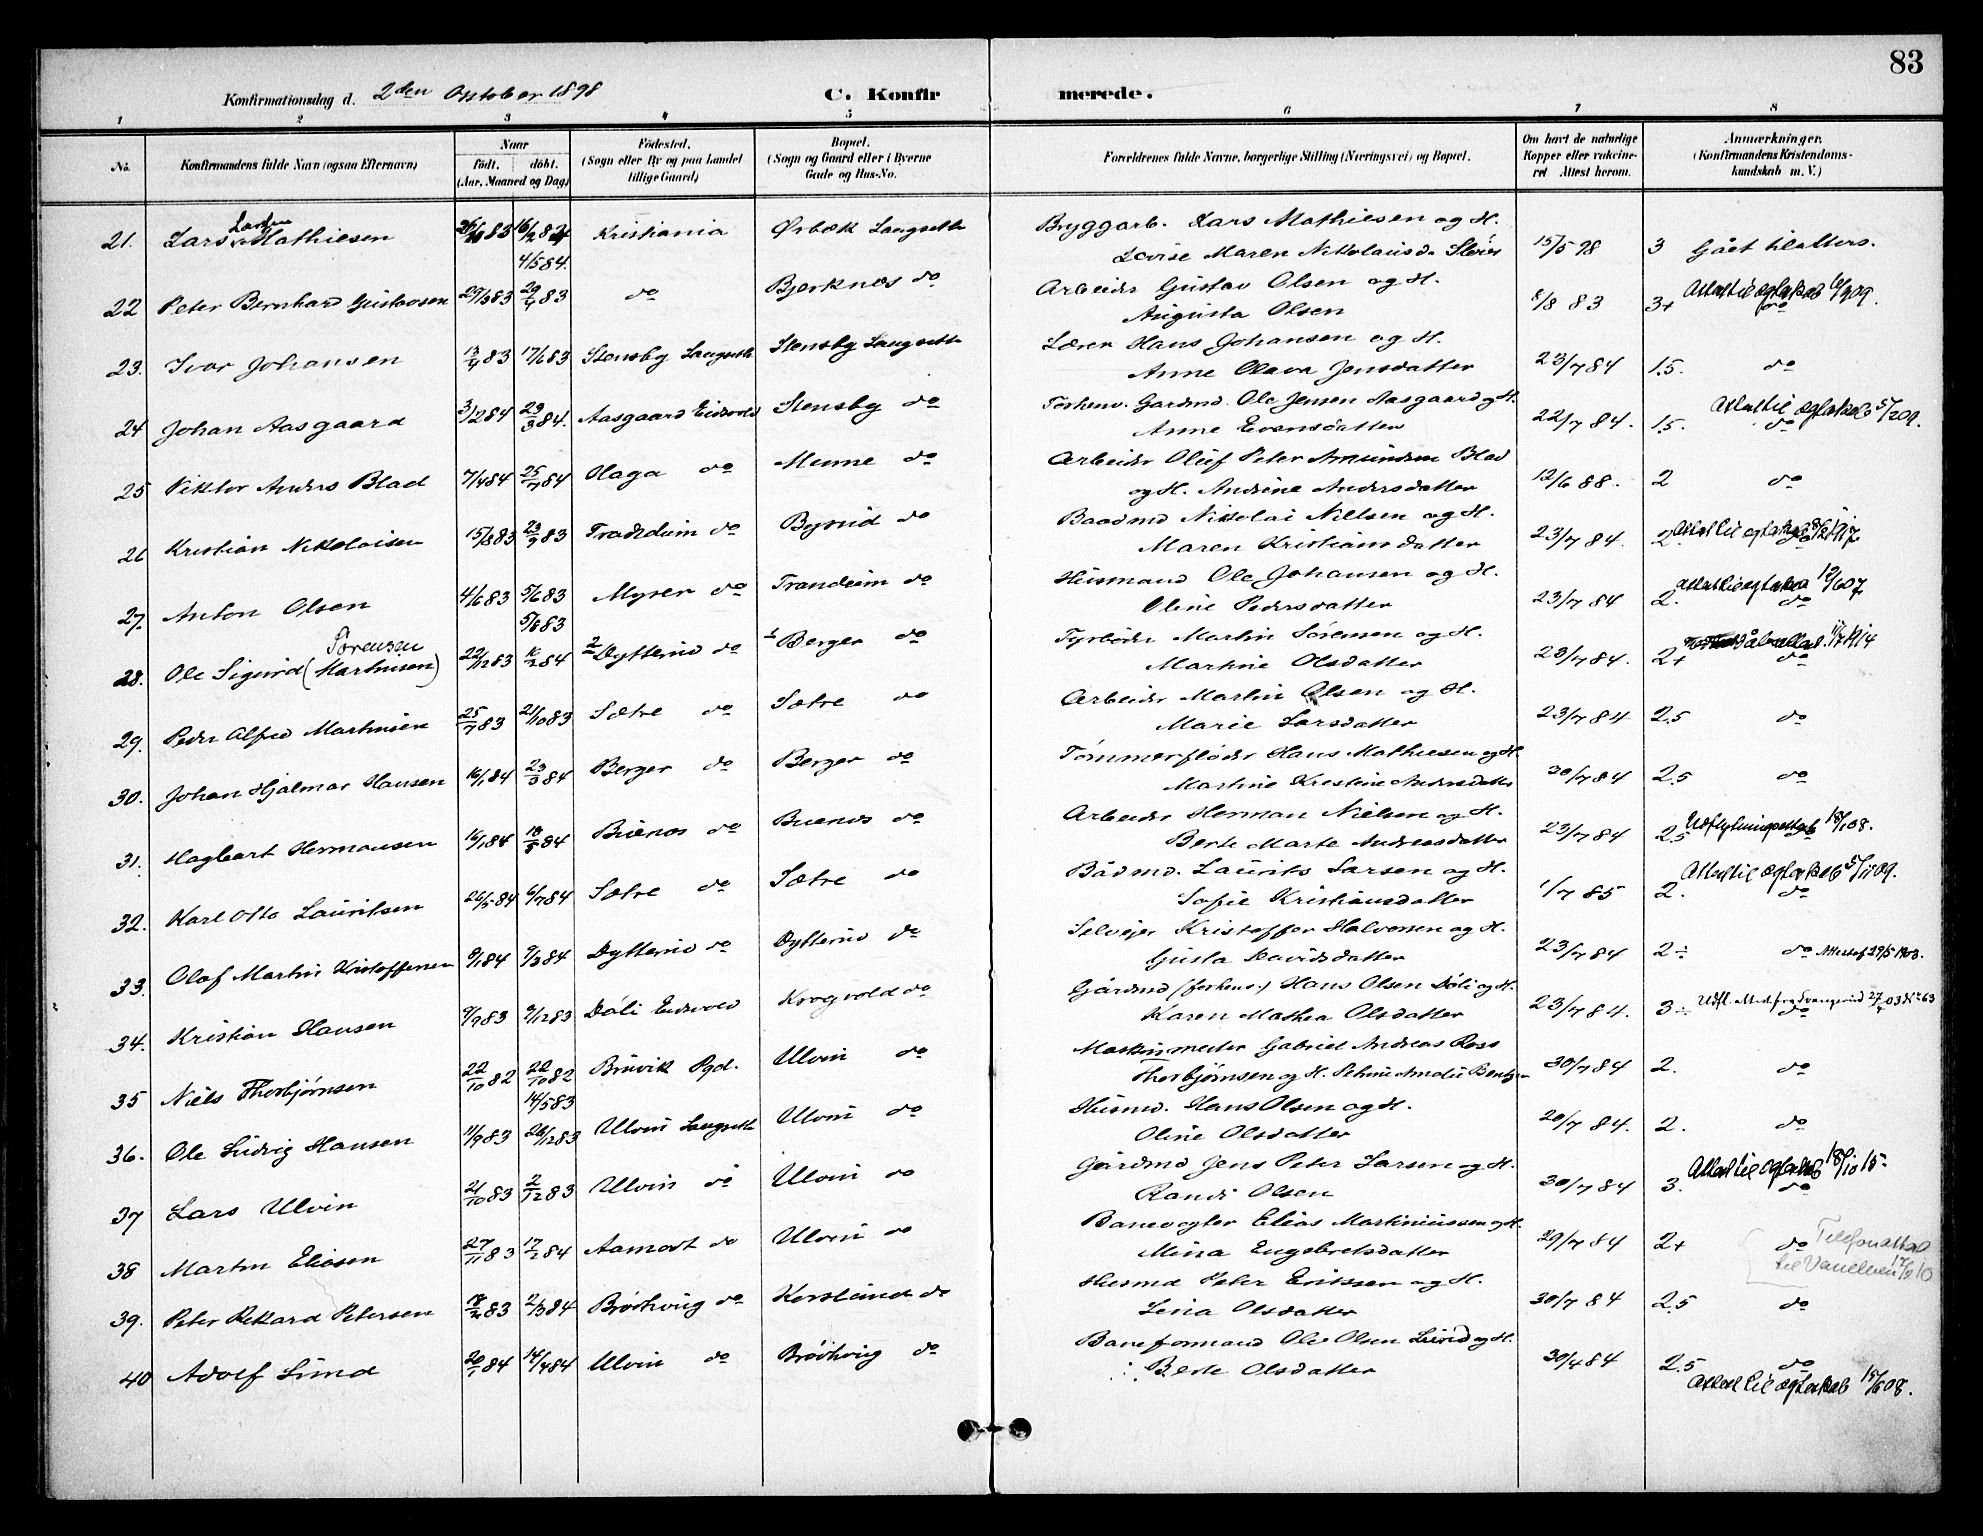 83
Konfirmationsdag d. 2den Oktober 1898 C. Konfirmerede.
1 2 3 4 5 6 7 8
No. Konfirmandens fulde Navn (ogsaa Efternavn) Naar födt. döbt. (Aar, Maaned og Dag) Födested. (Sogn eller By og paa Landet tillige Gaard) Bopæl. (Sogn og Gaard eller i Byerne Gade og Hus-No. Forældrenes fulde Navne, borgerlige Stilling (Næringsvei) og Bopæl. Om havt de naturlige Kopper eller vakcineret Attest herom. Anmærkninger. (Konfirmandens Kristendomskundskab m. V.)
21. Lars Mathiesen 83 Kristiania Ørbæk Langseth Bryggarb. Lars Mathiesen og H. 15/5 98 3 Gået til alters.
4/5 84. Lovise Maren Nikolaisd.
22 Peter Bernhard Gustavsen 29/3 83 29/4 83 do Bjerknes do Arbeider Gustav Olsen og H. 8/8 83 3+ Attest til ægteskab do
Augusta Olsen
23. Ivar Johansen 13/4 83 17/6 83 Stensby Langseth Stensby Langseth Lærer Hans Johansen og H. 23/7 84 1.5. do
Anne Olava Jensdatter
24 Johan Aasgaard 3/12 84 23/3 84. Aasgaard Eidsvold Stensby do Forhenv. Gardmd. Ole Jensen Aasgaard og H. 22/7 84. 1.5. Attest til ægteskab 5/2 09. do
Anne Evensdatter
25 Viktor Anders Blad 7/4 84 25/7 84 Haga do Minne do Arbeider Oluf Peter Amundsen Blad 12/6 88. 2 do
og H. Andrine Andersdatter
26 Kristian Nikolaisen 15/8 83 23/9 83 do Byrud do Baadmd Nikolai Nielsen og H. 23/7 84. 2 Attest til ægteskab do
Maren Kristiansdatter
27. Anton Olsen 4/6 83 5/6 83 Myrer do Trandeim do Husmand Ole Johansen og H. 23/7 84 2. Attest til ægteskab 12/6 07 do
5/8 83 Oline Pedersdatter
28. Ole Sigurd (Martinsen) Sørensen 22/12 83 84 Dytterud do Berger do Fyrbøder Martin Sørensen og H. 23/7 84. 2+ do
Martine Olsdatter
29. Peder Alfred Martinsen 25/7 83 21/10 83 Sætre do Sætre do Arbeider Martin Olsen og H. 23/7 84 2.5 do
Marie Larsdatter
30. Johan Hjalmar Hansen 16/1 84 23/3 84 Berger do Berger do Tømmerfløder Hans Mathiesen og H. 30/7 84 2.5 do
Martine Kristine Andersdatter
31. Hagbart Hermansen 16/1 84 18/5 84 Buenes do Buenes do Arbeider Herman Nielsen og H. 23/7 84 2.5 Udflytningsattest 18/1 08.
Berte Marte Andreasdatter
32. Karl Otto Lauritsen 26/5 84 6/7 84 Sætre do Sætre do Bådmd. Laurits Larsen og H. 1/7 85 2. Attest til ægteskab 5/11 09. do
Sofie Kristiansdatter
33. Olaf Martin Kristoffersen 9/1 84 9/3 84 Dytterud do Dytterud do Selveier Kristoffer Halvorsen og H. 23/7 84 2÷ do Attest af 29/5 1903.
Gusta Davidsdatter
34. Kristian Hansen 9/9 83 9/12 83 Døli Eidsvold Krogvold do Gårdmd (forhenv.) Hans Olsen Døli og H. 23/7 84. 3÷ do
Karen Mathea Olsdatter
35 Niels Thorbjørnsen 22/10 82 22/10 82 Bruvik Pgd. Ulvin do Maskinmester Gabriel Andreas Ross 30/7 84 2. do
14/5 83 Thorbjørnsen og H.
36. Ole Ludvig Hansen 11/9 83 26/12 83 Ulvin Langseth Ulvin do Husmd. Hans Olsen og H. 20/7 84. 2. do
Oline Olsdatter
37 Lars Ulvin 21/10 83 2/12 83 Ulvin do Ulvin do Gårdmd Jens Peter Larsen og H. 30/7 84 3. Attest til ægteskab 18/10 15. do
Randi Olsen
38 Martin Eliasen 27/11 83 17/2 84 Aamodt do Ulvin do Banevogter Elias Martiniussen og H. 29/7 84 2+ do Telefonattest til
Mina Engebretsdatter
39. Peter Rikard Petersen 18/2 83 2/3 84 Brøthvig do do Husmd Peter Eriksen og H. 30/7 84 2.5 do
Lina Olsdatter
40 Adolf Lund 20/1 84 14/4 84 Ulvin do Brøthvig do Baneformand Ole Olsen Lund og H. 30/4 84 2.5 do
Berte Olsdatter Attest til ægteskab 15/6 08.